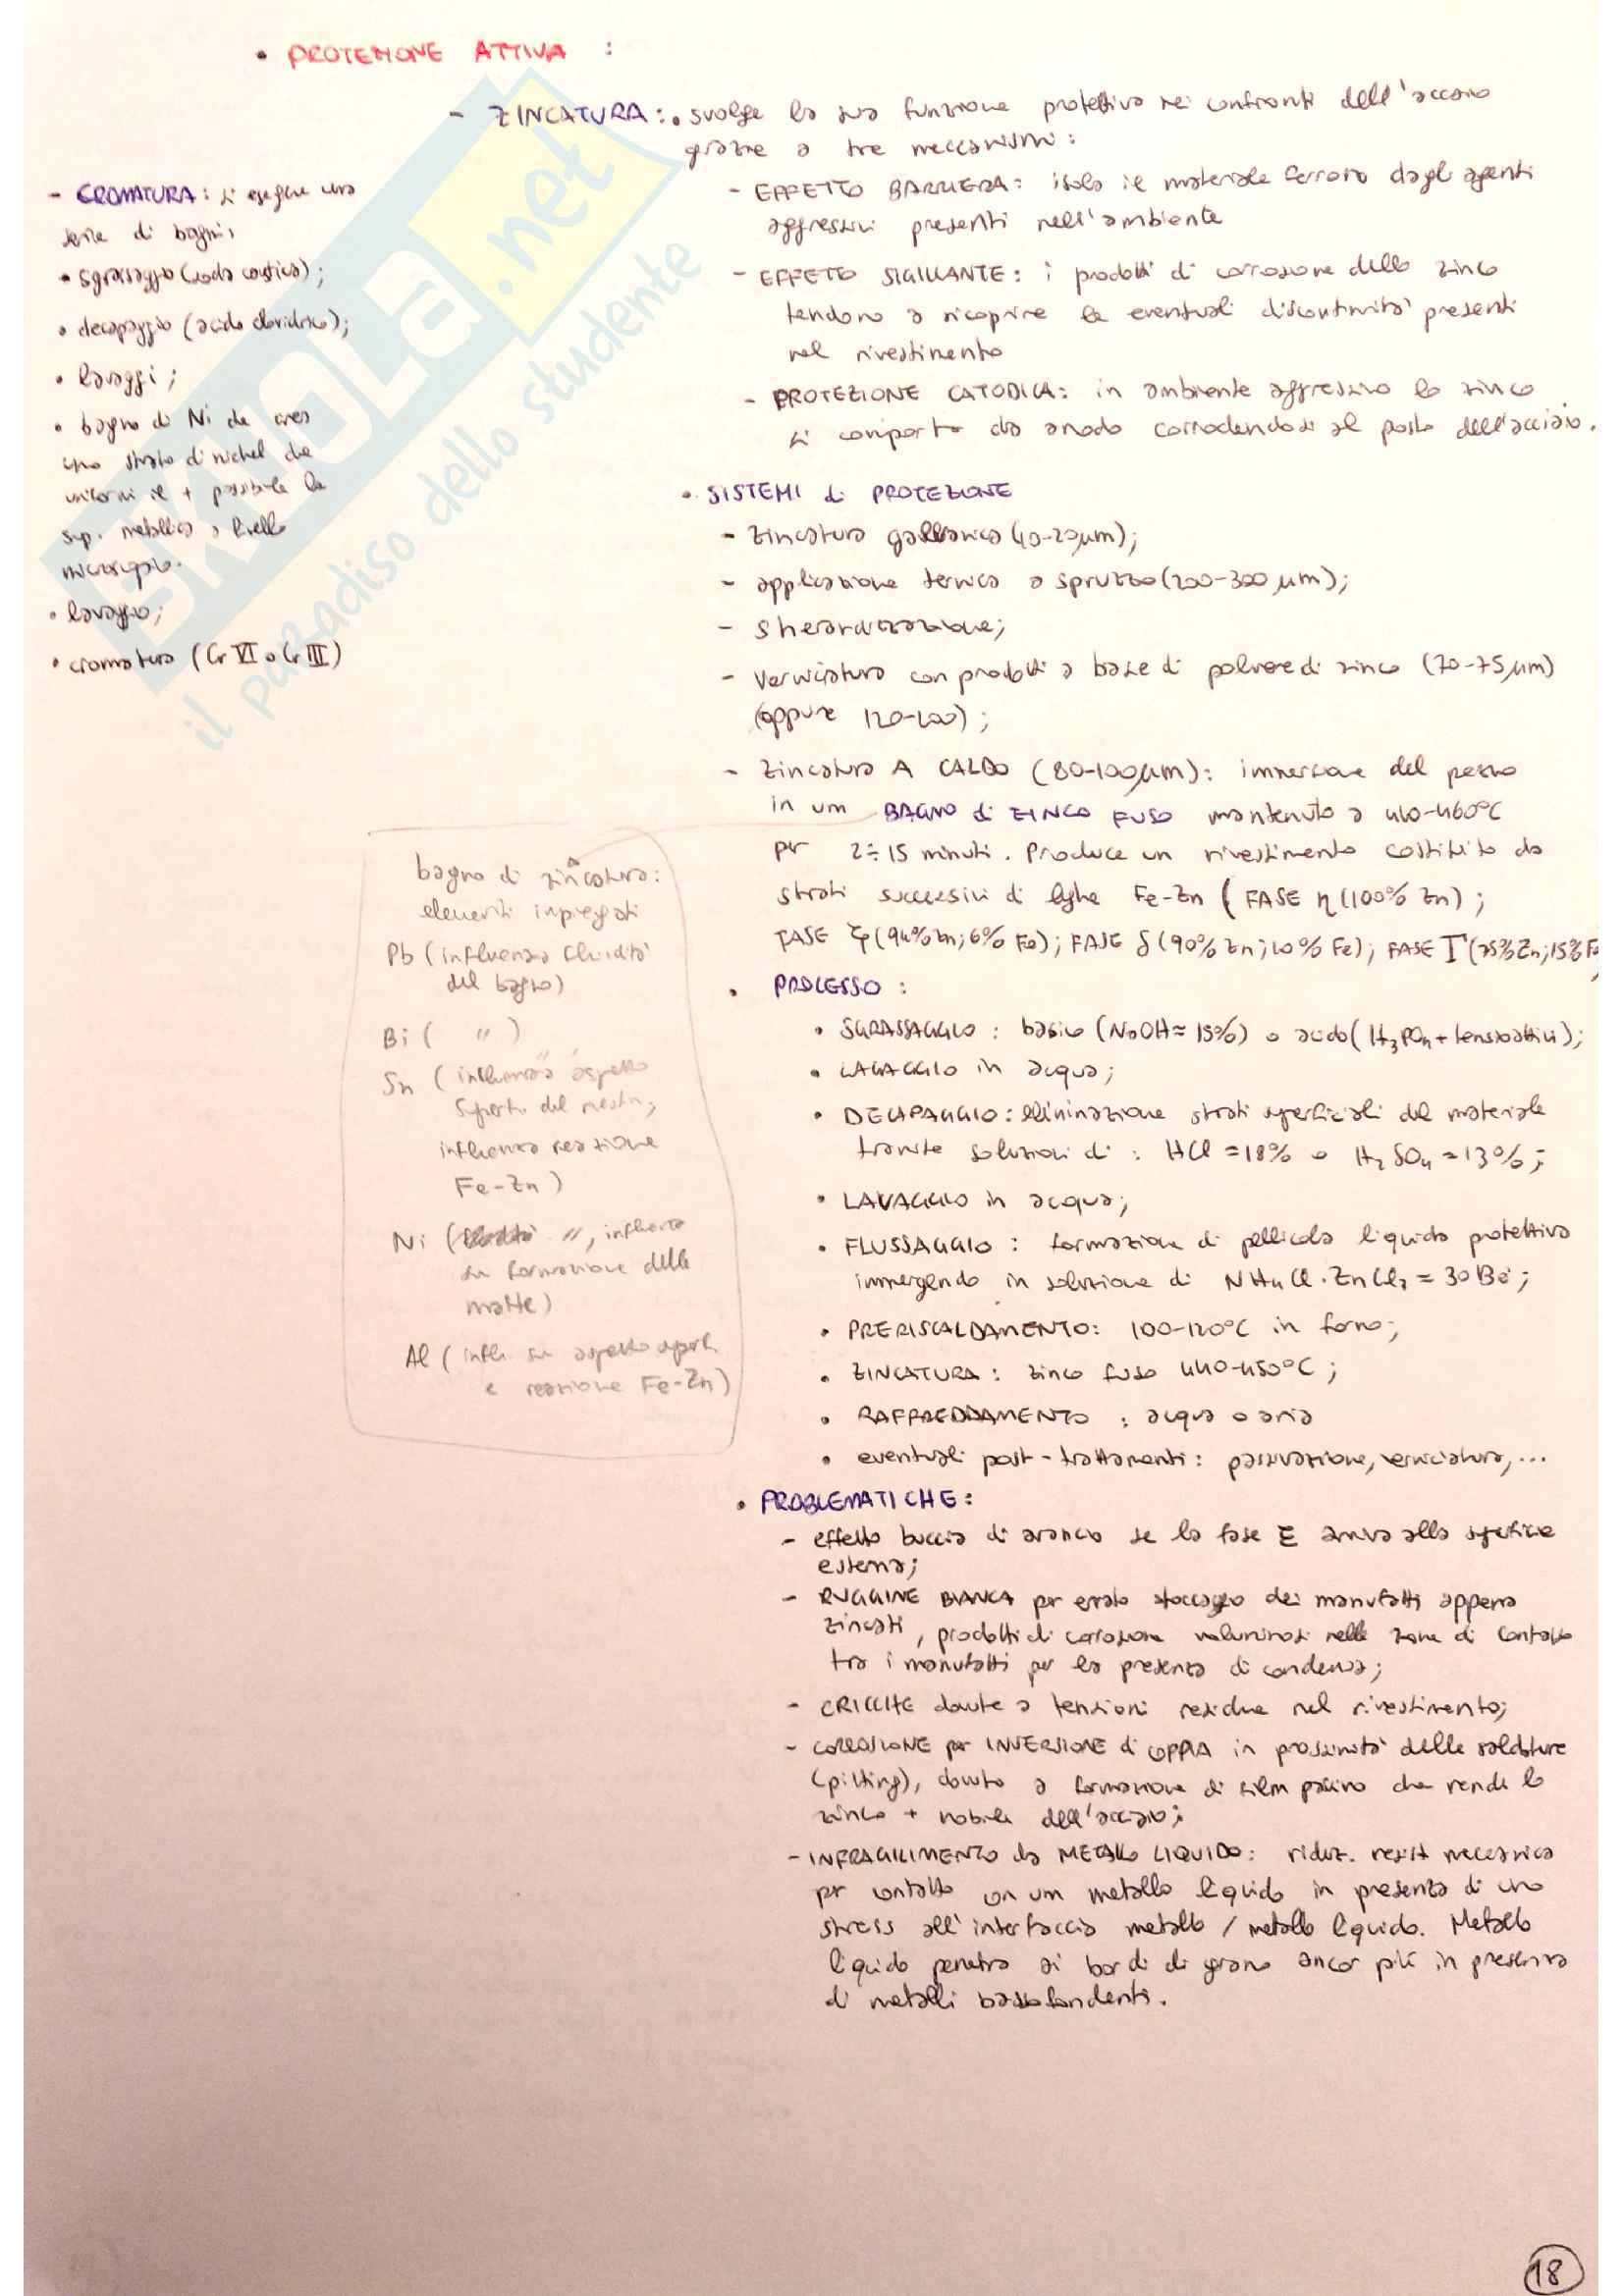 • PROTEZIONE ATTIVA :
- ZINCATURA: • svolge la sua funzione protettiva nei confronti dell'acciaio
grazie a tre meccanismi:
- EFFETTO BARRIERA: isola il materiale ferroso dagli agenti
aggressivi presenti nell'ambiente
- EFFETTO SIGILLANTE: i prodotti di corrosione dello zinco
tendono a ricoprire le eventuali discontinuità presenti
nel rivestimento
- PROTEZIONE CATODICA: in ambiente aggressivo lo zinco
si comporta da anodo corrodendosi al posto dell'acciaio.
- CROMATURA: si esegue una
serie di bagni:
• sgrassaggio (soda caustica);
• decapaggio (acido cloridrico);
• lavaggi;
• bagno di Ni che crea
uno strato di nichel che
uniformi il + possibile la
sup. metallica a livello
microscopio.
• lavaggio;
• cromatura (Cr VI o Cr III)
• SISTEMI di PROTEZIONE
- Zincatura galvanica (10-20µm);
- applicazione termica a spruzzo (200-300 µm);
- sherardizzazione;
- Verniciatura con prodotti a base di polvere di zinco (70-75µm)
(oppure 120-200);
- Zincatura A CALDO (80-100µm): immersione del pezzo
in un BAGNO di ZINCO FUSO mantenuto a 440-460°C
per 2÷15 minuti. Produce un rivestimento costituito da
strati successivi di leghe Fe-Zn (FASE η (100% Zn);
FASE ζ (94% Zn; 6% Fe); FASE δ (90% Zn; 10% Fe); FASE Γ (75% Zn; 15% Fe
bagno di zincatura:
elementi impiegati
Pb (influenza fluidità
del bagno)
Bi ( " )
Sn (influenza aspetto
superf. del rivestim;
influenza reazione
Fe-Zn)
Ni ( ", influenza
su formazione delle
matte)
Al (infl. su aspetto superf.
e reazione Fe-Zn)
• PROCESSO :
• SGRASSAGGIO : basico (NaOH ≈ 15%) o acido (H3PO4 + tensioattivi);
• LAVAGGIO in acqua;
• DECAPAGGIO: eliminazione strati superficiali del materiale
tramite soluzioni di : HCl = 18% o H2SO4 = 13%;
• LAVAGGIO in acqua;
• FLUSSAGGIO : formazione di pellicola liquida protettiva
immergendo in soluzione di NH4Cl·ZnCl2 = 30 Bé;
• PRERISCALDAMENTO: 100-120°C in forno;
• ZINCATURA : zinco fuso 440-450°C;
• RAFFREDDAMENTO : acqua o aria
• eventuali post-trattamenti: passivazione, verniciatura, ...
• PROBLEMATICHE:
- effetto buccia di arancio se la fase ξ arriva alla superficie
esterna;
- RUGGINE BIANCA per errato stoccaggio dei manufatti appena
zincati, prodotti di corrosione voluminosi nelle zone di contatto
tra i manufatti per la presenza di condensa;
- CRICCHE dovute a tensioni residue nel rivestimento;
- CORROSIONE per INVERSIONE di COPPIA in prossimità delle saldature
(pitting), dovuta a formazione di film passivo che rende lo
zinco + nobile dell'acciaio;
- INFRAGILIMENTO da METALLO LIQUIDO: riduz. resist meccanica
per contatto con un metallo liquido in presenza di uno
stress all'interfaccia metallo / metallo liquido. Metallo
liquido penetra ai bordi di grano ancor più in presenza
di metalli bassofondenti.
SKUOLA.net
il paradiso dello studente
18